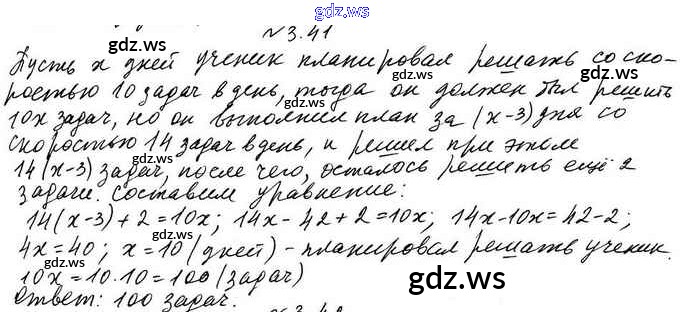 №3.41
gdz.ws
Пусть x дней ученик планировал решать со ско-
gdz.ws
ростью 10 задач в день, тогда он должен был решить
10x задач, но он выполнил план за (x-3) дня со
gdz.ws gdz.ws
скоростью 14 задач в день, и решил при этом
14(x-3) задач, после чего, осталось решить ещё 2
gdz.ws
задачи. Составим уравнение:
14(x-3)+2=10x; 14x-42+2=10x; 14x-10x=42-2;
gdz.ws gdz.ws
4x=40; x=10 (дней) - планировал решать ученик.
10x=10·10=100 (задач)
gdz.ws
Ответ: 100 задач.
gdz.ws